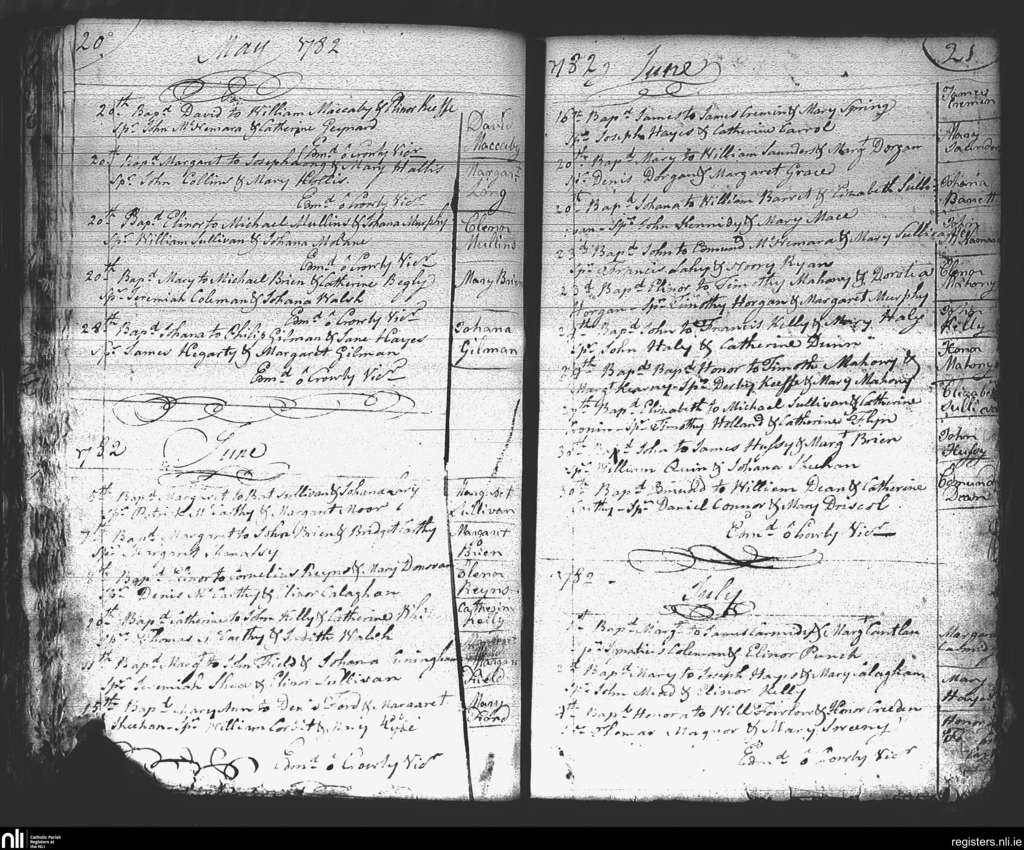 20
May 1782
20th Bapd David to William Maccaby & Elinor Keeffe
Spr John McNemara & Catherine
David Maccaby
Edmd ô Crowly Vicr
20th Bapd Margaret to Joseph Long & Mary Hallis
Spr John Collins & Mary Hollis
Margaret Long
Edmd ô Crowly Vicr
20th Bapd Elinor to Michael Mullins & Johana Murphy
Spr William Sullivan & Johana
Elenor Mullins
Edmd ô Crowly Vicr
20th Bapd Mary to Michael Brien & Catherine Begly
Spr Jeremiah Coleman & Johana Walsh
Mary Brien
Edmd ô Crowly Vicr
28th Bapd Johana to Philip Gilman & Jane Hayes
Spr James Hegarty & Margaret Gilman
Johana Gilman
Edmd ô Crowly Vicr
1782 June
5th Bapd Margaret to Bat Sullivan & Johana
Spr Patrick McCarthy & Margaret Moor
Margaret Sullivan
7th Bapd Margaret to John Brien & Bridget Carthy
Spr Margaret
Margaret Brien
8th Bapd Elinor to Cornelius Reyns & Mary Donovan
Spr Denis McCarthy & Elinor Calaghan
Elenor Reyns
Bapd Catherine to John Kelly & Catherine
Spr Thomas McCarthy & Judith Walsh
Catherin Kelly
11th Bapd Margt to John Field & Johana Cuningham
Spr Jeremiah Shea & Elinor Sullivan
Margaret Field
15th Bapd Mary Ann to Denis Ford & Margaret
Sheehan Spr William Corbit & Mary
Mary Ford
Edmd ô Crowly Vicr
21
1782 June
16th Bapd James to James Cremin & Mary Spring
Spr Joseph Hayes & Catherine Carrol
James Cremin
20th Bapd Mary to William Saunders & Margt Dorgan
Spr Denis Dorgan & Margaret Grace
Mary Saunders
20th Bapd Johana to William Barret & Elizabeth Sulli-
van - Spr John Kennidy & Mary Mace
Johana Barrett
23d Bapd John to Edmund McNemara & Mary Sullivan
Spr Francis Fahy & Honry Ryan
John
23d Bapd Elinor to Timothy Mahony & Dorothea
Horgan - Spr Timothy Horgan & Margaret Murphy
Elenor Mahony
Bapd John to Francis Kelly & Mary Haly
Spr John Haly & Catherine Dunn
John Kelly
29th Bapd Bapd Honor to Timothe Mahony &
Margt Kearny - Spr Darby Keeffe & Mary Mahony
Honor Mahony
Bapd Elizabeth to Michael Sullivan & Catherine
Cronin - Spr Timothy Holland & Catherine Flyn
Elizabeth Sullivan
30th Bapd John to James Hussy & Margt Brien
Spr William Quin & Johana Sheehan
John Hussy
30th Bapd Edmund to William Dean & Catherine
Carthy - Spr Daniel Connor & Mary Driscol
Edmund Dean
Edmd ô Crowly Vicr
1782
July
1st Bapd Margt to James Carmidy & Margt Cantlan
Spr Ignatius Coleman & Elinor Punch
Margaret
2d Bapd Mary to Joseph Hayes & Mary Calaghan
Spr John Mead & Elinor Kelly
Mary Hayes
4th Bapd Honora to Will & Honor Creeden
Spr Thomas Maguor & Mary Sweeny
Honora
Edmd ô Crowly Vicr
nli Catholic Parish Registers at the NLI
registers.nli.ie